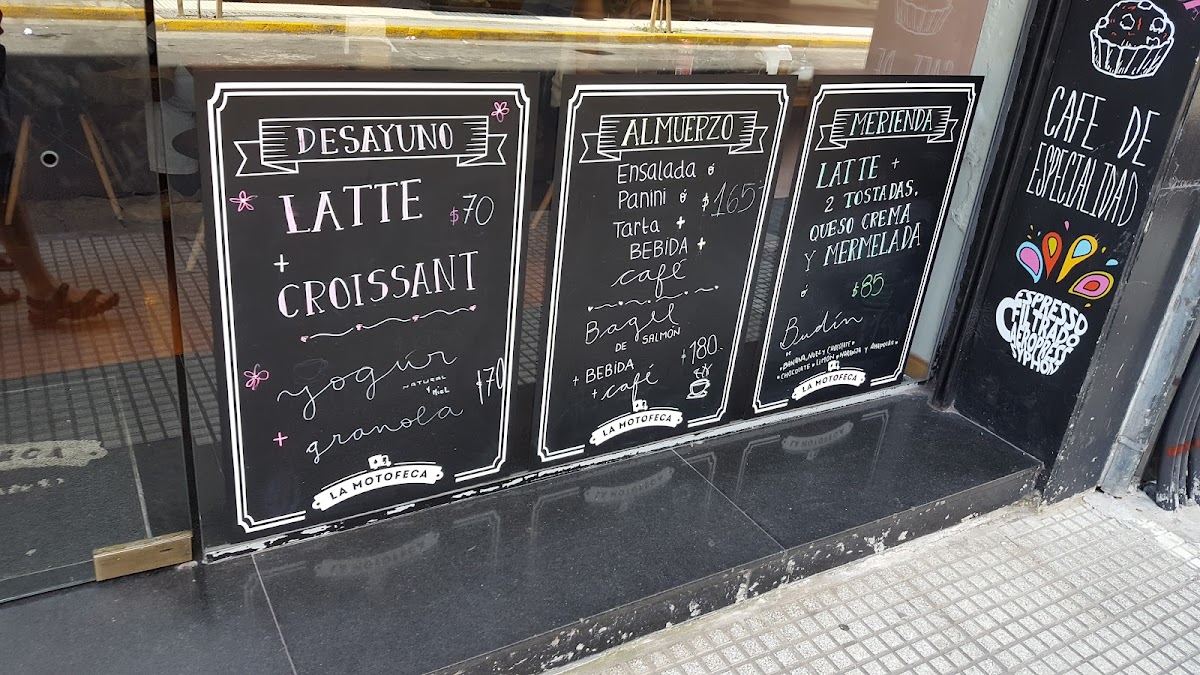 DESAYUNO
LATTE $70
+
CROISSANT
yogúr
NATURAL
Y
MIEL
$70
+ granola
LA MOTOFECA
ALMUERZO
Ensalada ó
Panini ó $165
Tarta +
BEBIDA +
café
Bagel
DE
SALMÓN
$180.
+ BEBIDA
+ café
LA MOTOFECA
MERIENDA
LATTE +
2 TOSTADAS,
QUESO CREMA
Y MERMELADA
ó $85
Budín
DE
LA MOTOFECA
CAFE DE
ESPECIALIDAD
ESPRESSO
FILTRADO
AEROPRESS
SYPHON